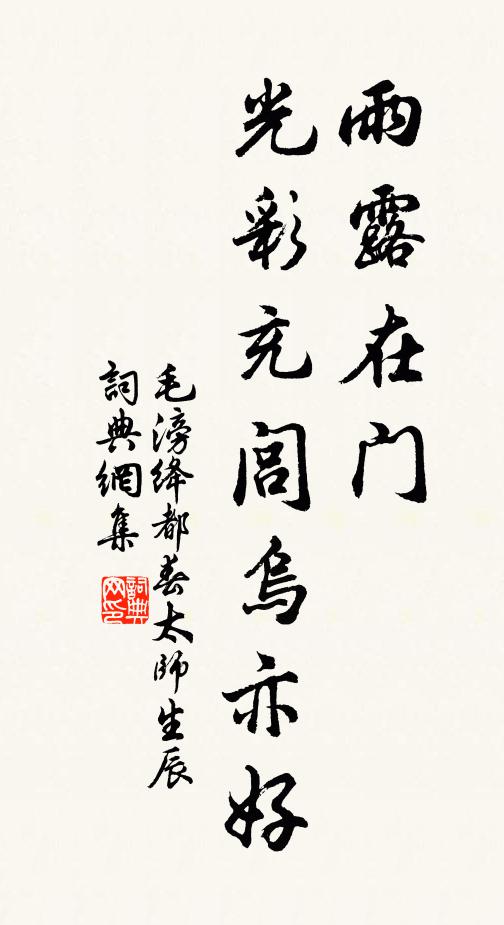 雨露在门
光彩充闾烏亦好
毛滂绛都春太師生辰
詞典網集
詞典网印